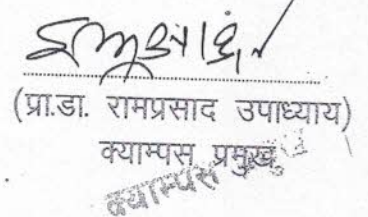 (प्रा.डा. रामप्रसाद उपाध्याय)
क्याम्पस प्रमुख
क्याम्पस